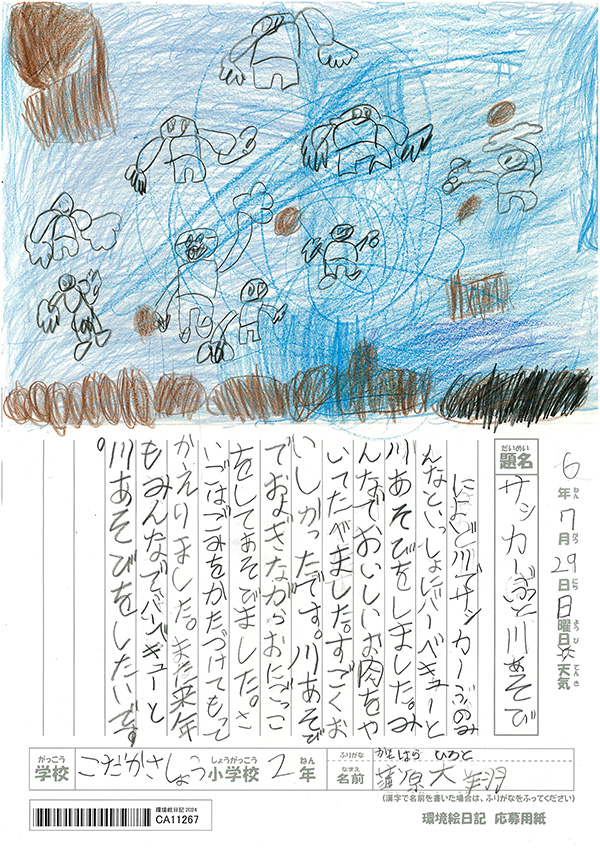 6年7月29日日曜日天気
題名 だいめい
サッカーぶと川あそび
によど川でサッカーぶのみ
んなといっしょにバーベキューと
川あそびをしました。み
んなでおいしいお肉をや
いてたべました。すごくお
いしかったです。川あそび
でおよぎながらおにごっこ
をしてあそびました。さ
いごはごみをかたづけてもって
かえりました。また来年
もみんなでバーベキューと
川あそびをしたいです
。
がっこう 学校 こだかさしょう しょうがっこう 小学校 2 ねん 年
ふりがな かもはら ひろと
なまえ 名前 蒲原大翔
(漢字で名前を書いた場合は、ふりがなをふってください)
環境絵日記2024
CA11267
環境絵日記 応募用紙